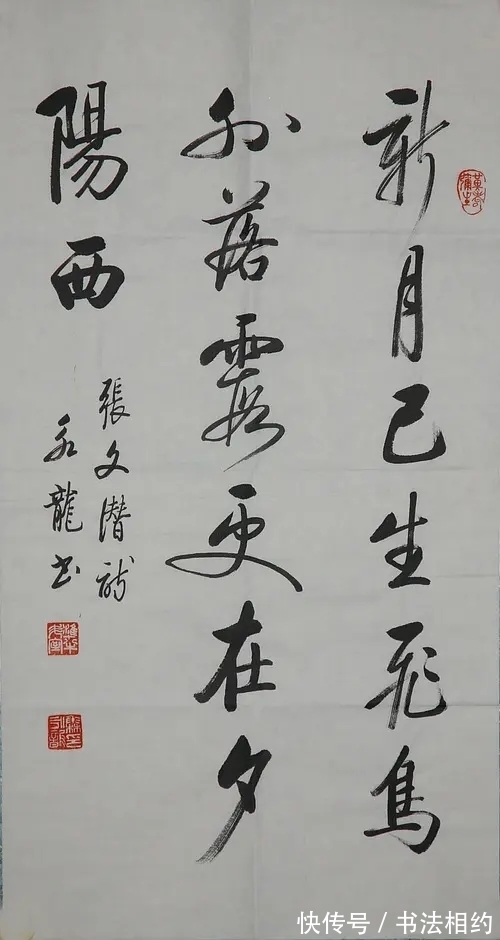 新月已生飛鳥
外落霞更在夕
陽西
張文潛詩
永龍书
快传号 / 书法相约